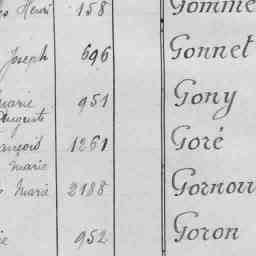 Henri 158 Gomme
Joseph 696 Gonnet
Marie 951 Gony
Auguste
François 1261 Goré
Marie
Marie 2188 Gornou
952 Goron